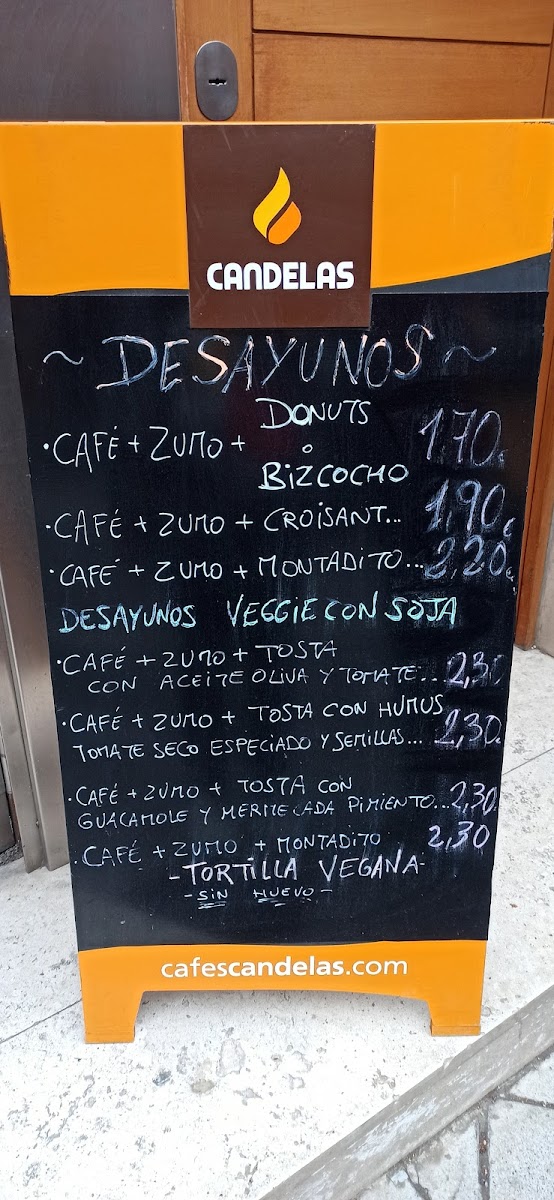 CANDELAS
~ DESAYUNOS ~
· CAFÉ + ZUMO + DONUTS o BIZCOCHO 1,70€
· CAFÉ + ZUMO + CROISANT... 1,90€
· CAFÉ + ZUMO + MONTADITO... 2,20€
DESAYUNOS VEGGIE CON SOJA
· CAFÉ + ZUMO + TOSTA
CON ACEITE OLIVA Y TOMATE... 2,30
· CAFÉ + ZUMO + TOSTA CON HUMUS
TOMATE SECO ESPECIADO Y SEMILLAS... 2,30
· CAFÉ + ZUMO + TOSTA CON
GUACAMOLE Y MERMELADA PIMIENTO... 2,30
· CAFÉ + ZUMO + MONTADITO 2,30
- TORTILLA VEGANA -
- SIN HUEVO -
cafescandelas.com